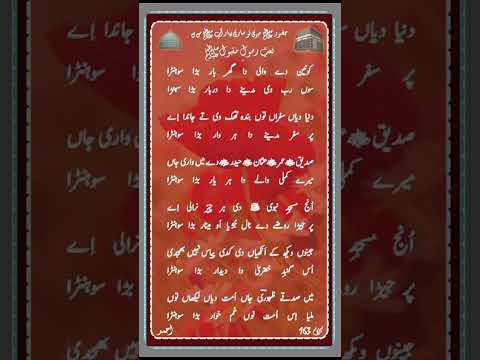 حضور ﷺ
نعت رسول مقبول ﷺ
کونین دے والی دا گھر بار بڑا سوہنڑا
سوں رب دی مدینے دا دربار بڑا سوہنڑا
دنیا دیاں سفراں توں بندہ تھک وی تے جاندا اے
پر سفر مدینے دا ہر وار بڑا سوہنڑا
صدیق عمر عثمان حیدر دے میں واری جاں
میرے کملی والے دا ہر یار بڑا سوہنڑا
اُنج مسجدِ نبوی دی ہر چیز نرالی اے
پر جیڑا روضے دے نال جڑیا او مینار بڑا سوہنڑا
جینوں ویکھ کے اکھیاں دی کدی پیاس نہیں بھجدی
اُس گنبدِ خضریٰ دا دیدار بڑا سوہنڑا
میں صدقے ظہوری جاں اُمت دیاں لیکھاں توں
ملیا اِس اُمت نوں غم خوار بڑا سوہنڑا
163